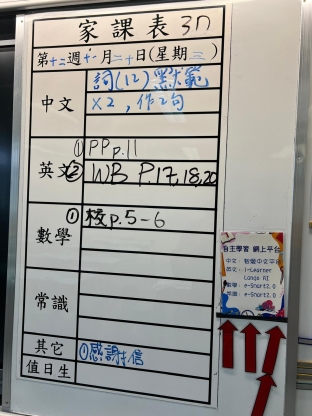 家課表 3D
第十二週十一月二十日(星期三)
中文 詞(12)默範
x2,作2句
英文 ① PP p.11
② WB P.17,18,20
數學 ① 校p.5-6
常識
其它 ①感謝信
值日生
自主學習 網上平台
中文:
英文: i-Learner
Longo AI
數學: e-Smart2.0
常識: e-Smart2.0